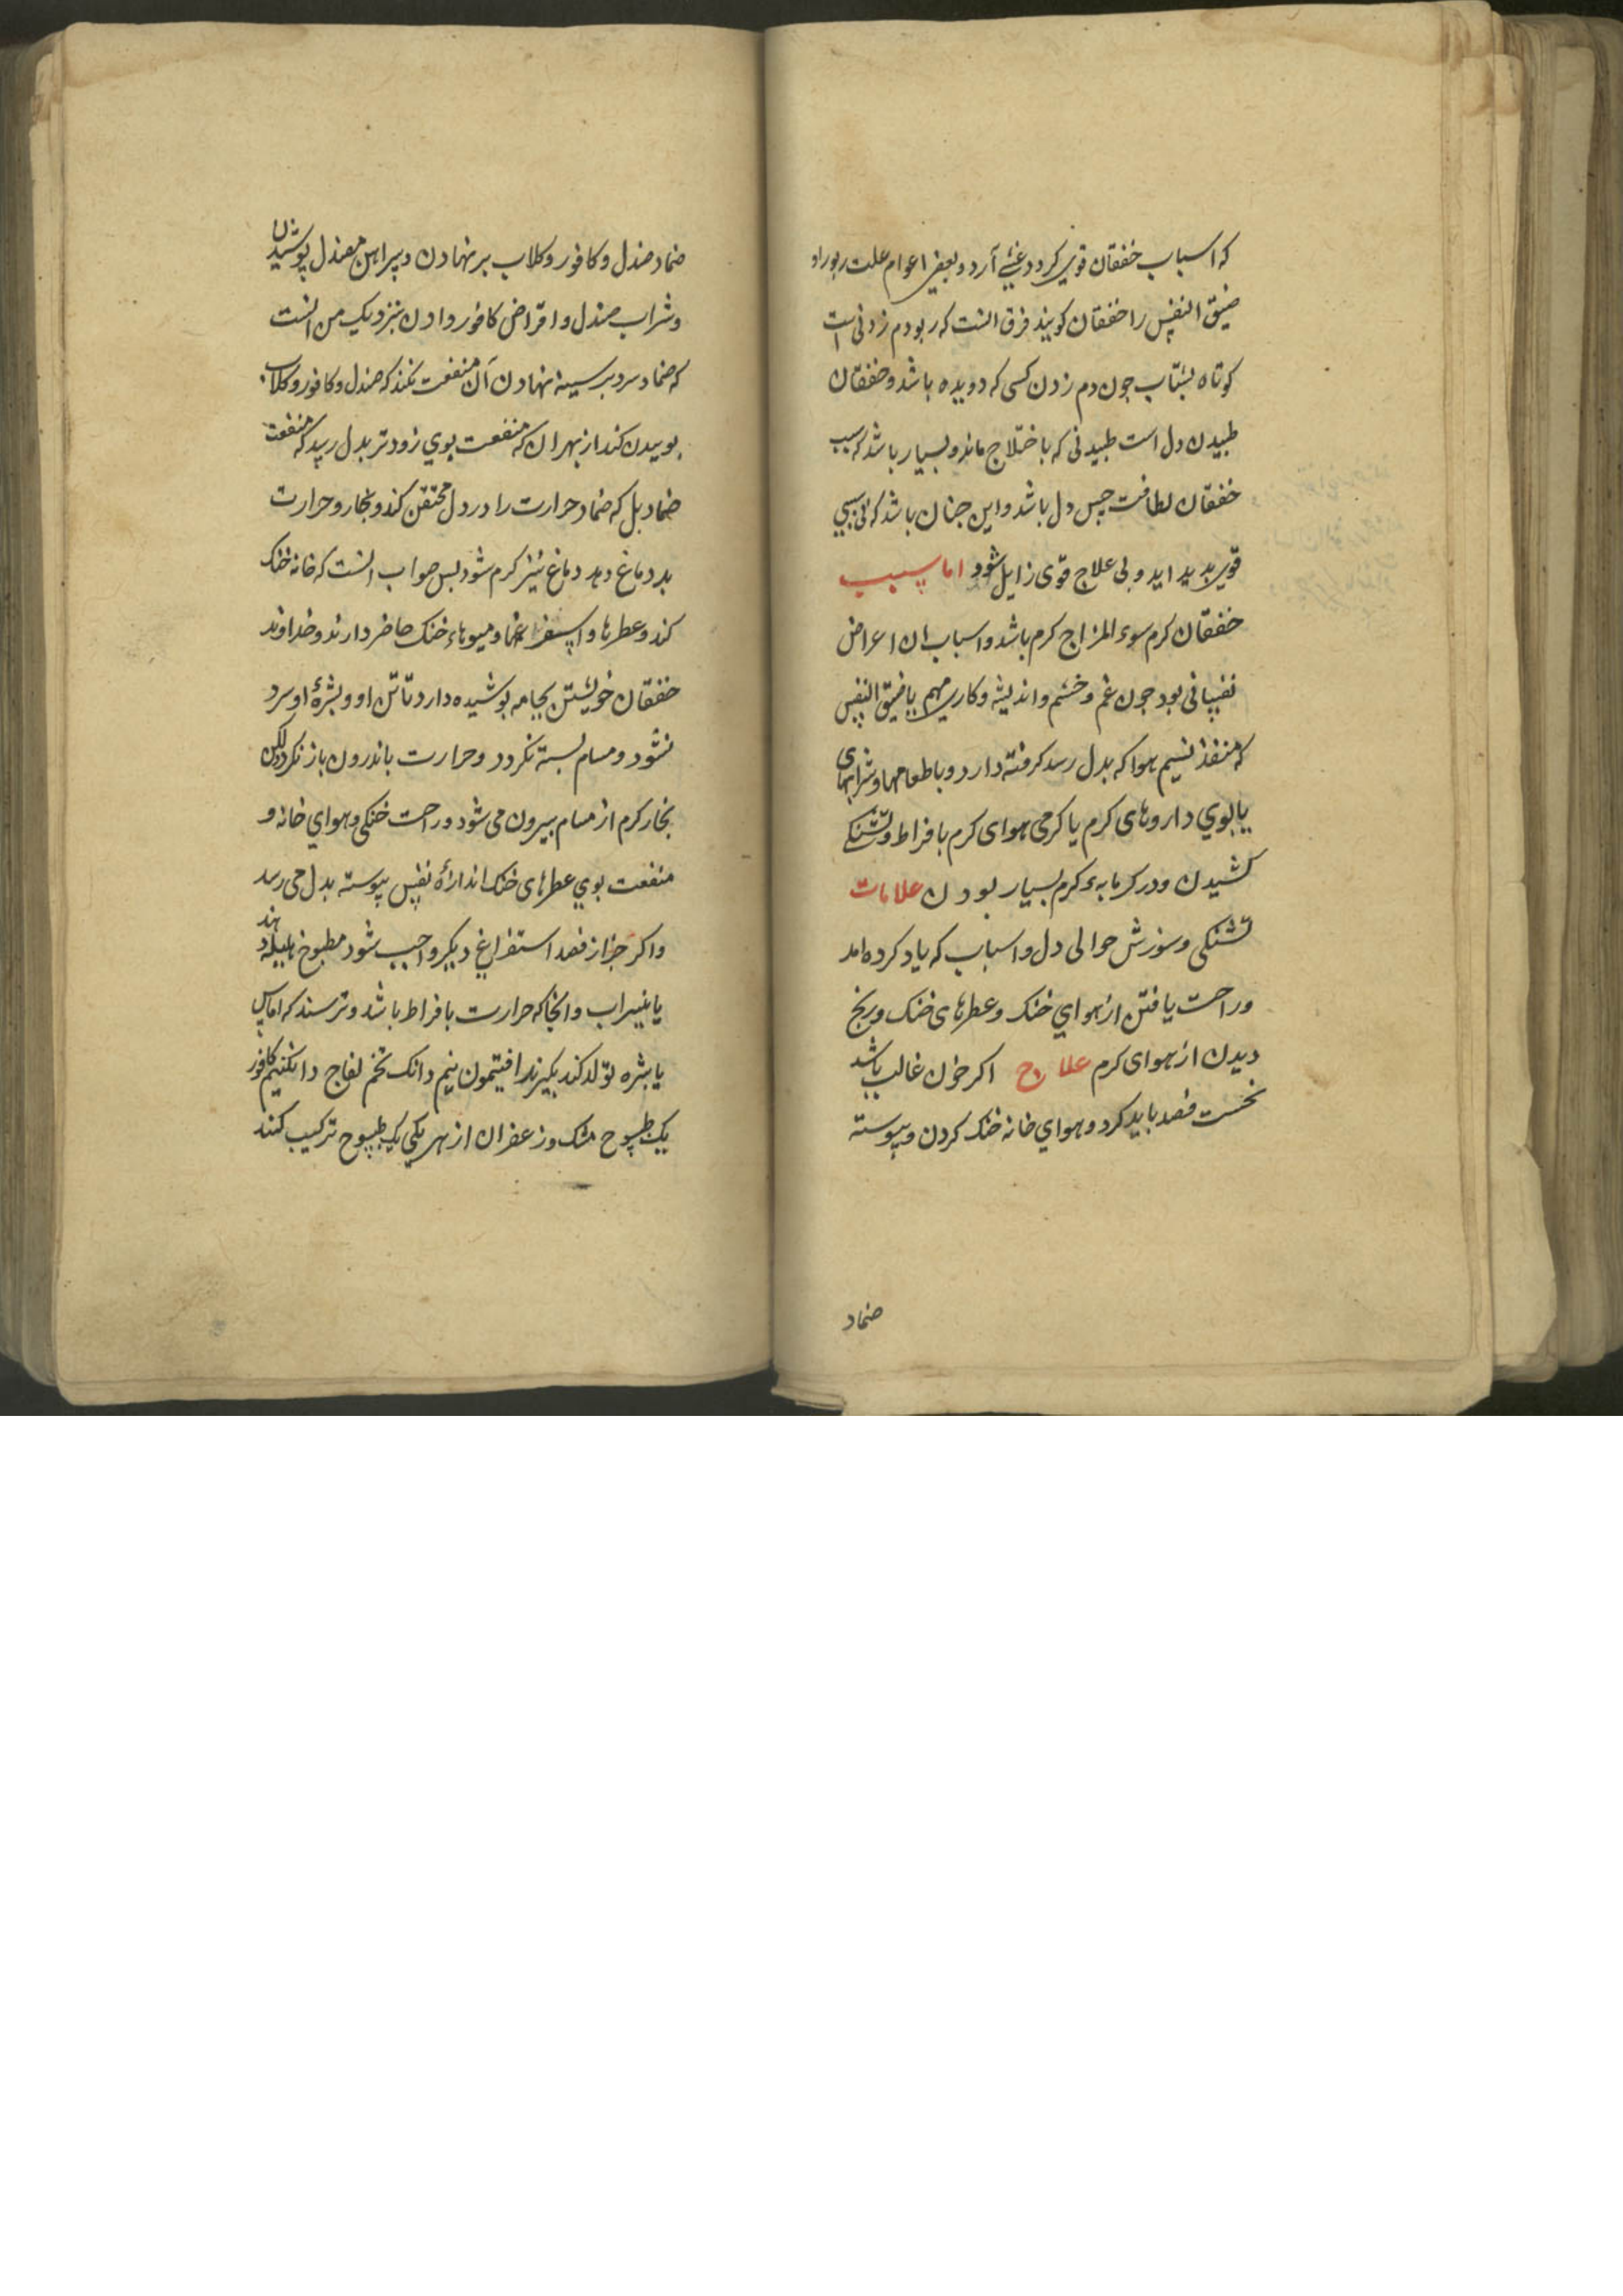 که اسباب خفقان قوی کردد غشی آرد و بعضی اعوام علت ربو راو
ضیق النفس را خفقان کویند فرق انست که ربو دم زدنی است
کوتاه بشتاب جون دم زدن کسی که دویده باشد و خفقان
طبیدن دل است طبیدنی که باختلاج ماند و بسیار باشد که سبب
خفقان لطافت حس دل باشد و این جنان باشد که بی سببی
قوی بدید اید و بی علاج قوی زایل شود اما سبب
خفقان کرم سوء المزاج کرم باشد و اسباب ان اعراض
نفسانی بود جون غم و خشم و اندیشه و کاری مهم یا ضیق النفس
که منفذ نسیم هوا که بدل رسد کرفته دارد و یا طعامها و شرابهای
یا بوی داروهای کرم یا کرمی هوای کرم بافراط و تشنکی
کشیدن و در کرمابهٔ کرم بسیار بودن علامات
تشنکی و سوزش حوالی دل و اسباب که یاد کرده امد
و راحت یافتن از هوای خنک و عطرهای خنک و رنج
دیدن از هوای کرم علاج اکر خون غالب باشد
نخست فصد باید کرد و هوای خانه خنک کردن و پیوسته
ضماد
ضماد صندل و کافور و کلاب بر نهادن و پیراهن مصندل پوشیدن
و شراب صندل و اقراص کافور دادن بنزدیک من انست
که ضماد سرد بر سینه نهادن آن منفعت نکند که صندل و کافور و کلاب
بوییدن کند از بهر ان که منفعت بوی زودتر بدل رسد که منفعت
ضماد بل که ضماد حرارت را در دل محتقن کند و بخار و حرارت
بدماغ دهد دماغ نیز کرم شود بس صواب انست که خانه خنک
کند و عطرها و اسپرغمها و میوهاء خنک حاضر دارند و خداوند
خفقان خویشتن بجامه بوشیده دارد تا تن او و بشرهٔ او سرد
نشود و مسام بسته نکردد و حرارت باندرون باز نکردد لکن
بخار کرم از مسام بیرون می شود و راحت خنکی و هوای خانه و
منفعت بوی عطرهای خنک اندازهٔ نفس پیوسته بدل می رسد
و اکر جز از فصد استفراغ دیکر واجب شود مطبوخ هلیله دهند
یا بنیراب و انجا که حرارت بافراط باشد و ترسند که اماس
یا بثره تولد کند بکیرند افتیمون نیم دانک تخم لفاح دانکنیم کافور
یک طسوج مشک و زعفران از هر یکی یک طسوج ترکیب کنند